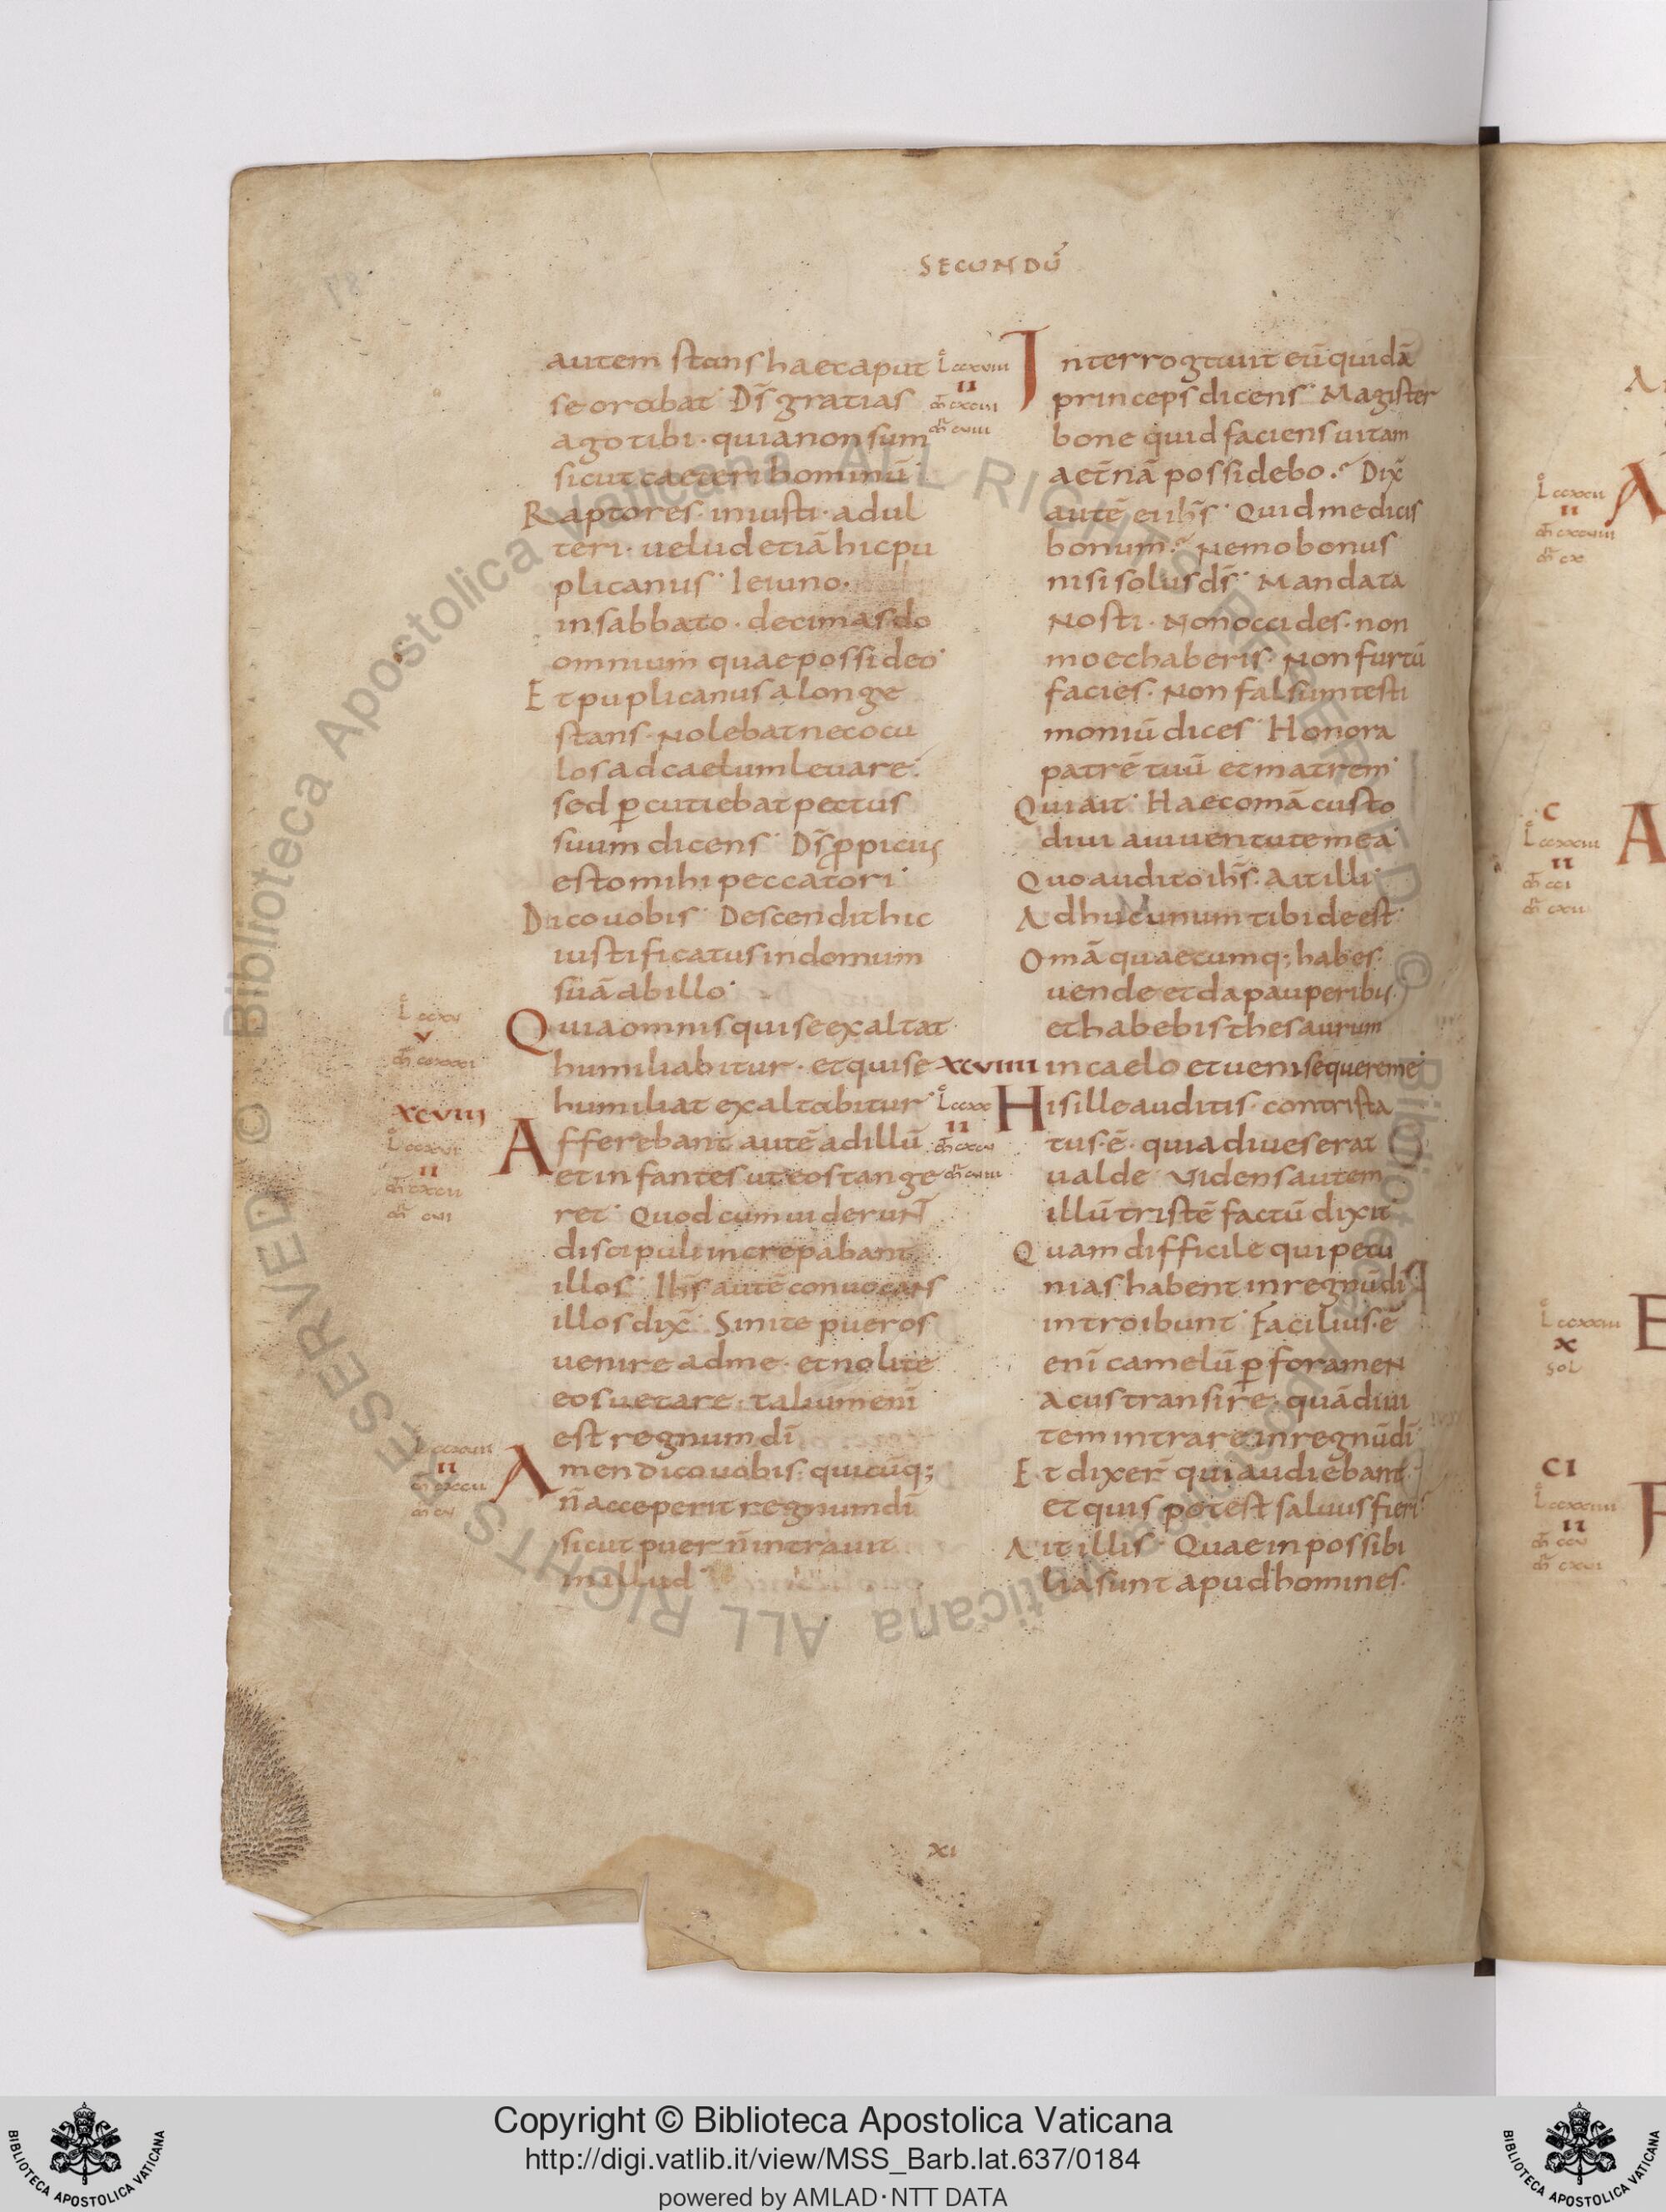 SECUNDŪ
autem stans haec aput
se orabat· Ds̄ gratias
ago tibi· quia non sum
sicut caeteri hominū·
Raptores· iniusti· adul
teri· uelud etiā hic pu
plicanus· Ieiuno·
in sabbato· decimas do
omnium quae possideo·
Et puplicanus a longe
stans· Nolebat nec ocu
los ad caelum leuare·
sed ꝑcutiebat pectus
suum dicens· Ds̄ ꝓpicius
esto mihi peccatori·
Dico uobis· Descendit hic
iustificatus in domum
suā ab illo·
Quia omnis qui se exaltat
humiliabitur· et qui se
humiliat exaltabitur·
xcviii
Afferebant autē ad illū
et infantes ut eos tange
ret· Quod cum uiderunt
discipuli increpabant
illos· Ihs̄ autē conuocans
illos dix̄· Sinite pueros
uenire ad me· et nolite
eos uetare· talium enī
est regnum dī
Amen dico uobis· quicūq;
n̄ acceperit regnum dī
sicut puer n̄ intrauit
in illud·
Interrogauit eū quidā
princeps dicens· Magister
bone quid faciens uitam
aet̄nā possidebo· Dix̄
autē ei ihs̄· Quid me dicis
bonum· Nemo bonus
nisi solus ds̄· Mandata
Nosti· Non occides· non
moechaberis· Non furtū
facies· Non falsum testi
moniū dices· Honora
patrē tuū et matrem·
Qui ait· Haec omā custo
diui a iuuentute mea·
Quo audito ihs̄· ait illi·
Adhuc unum tibi deest·
Omā quaecumq; habes·
uende et da pauperibus·
et habebis thesaurum
xcviiii
in caelo et ueni sequere me·
His ille auditis· contrista
tus·ē· quia diues erat
ualde· Videns autem
illū tristē factū dixit
Quam difficile qui pecu
nias habent in regnū dī
introibunt· Facilius·ē
enī camelū ꝑ foramen
acus transire· quā diui
tem intrare in regnū dī·
Et dixer̄ qui audiebant·
et quis potest saluus fieri
Ait illis· Quae inpossibi
lia sunt apud homines·
xi
C
CI
Copyright © Biblioteca Apostolica Vaticana
http://digi.vatlib.it/view/MSS_Barb.lat.637/0184
powered by AMLAD·NTT DATA
BIBLIOTECA APOSTOLICA VATICANA
BIBLIOTECA APOSTOLICA VATICANA